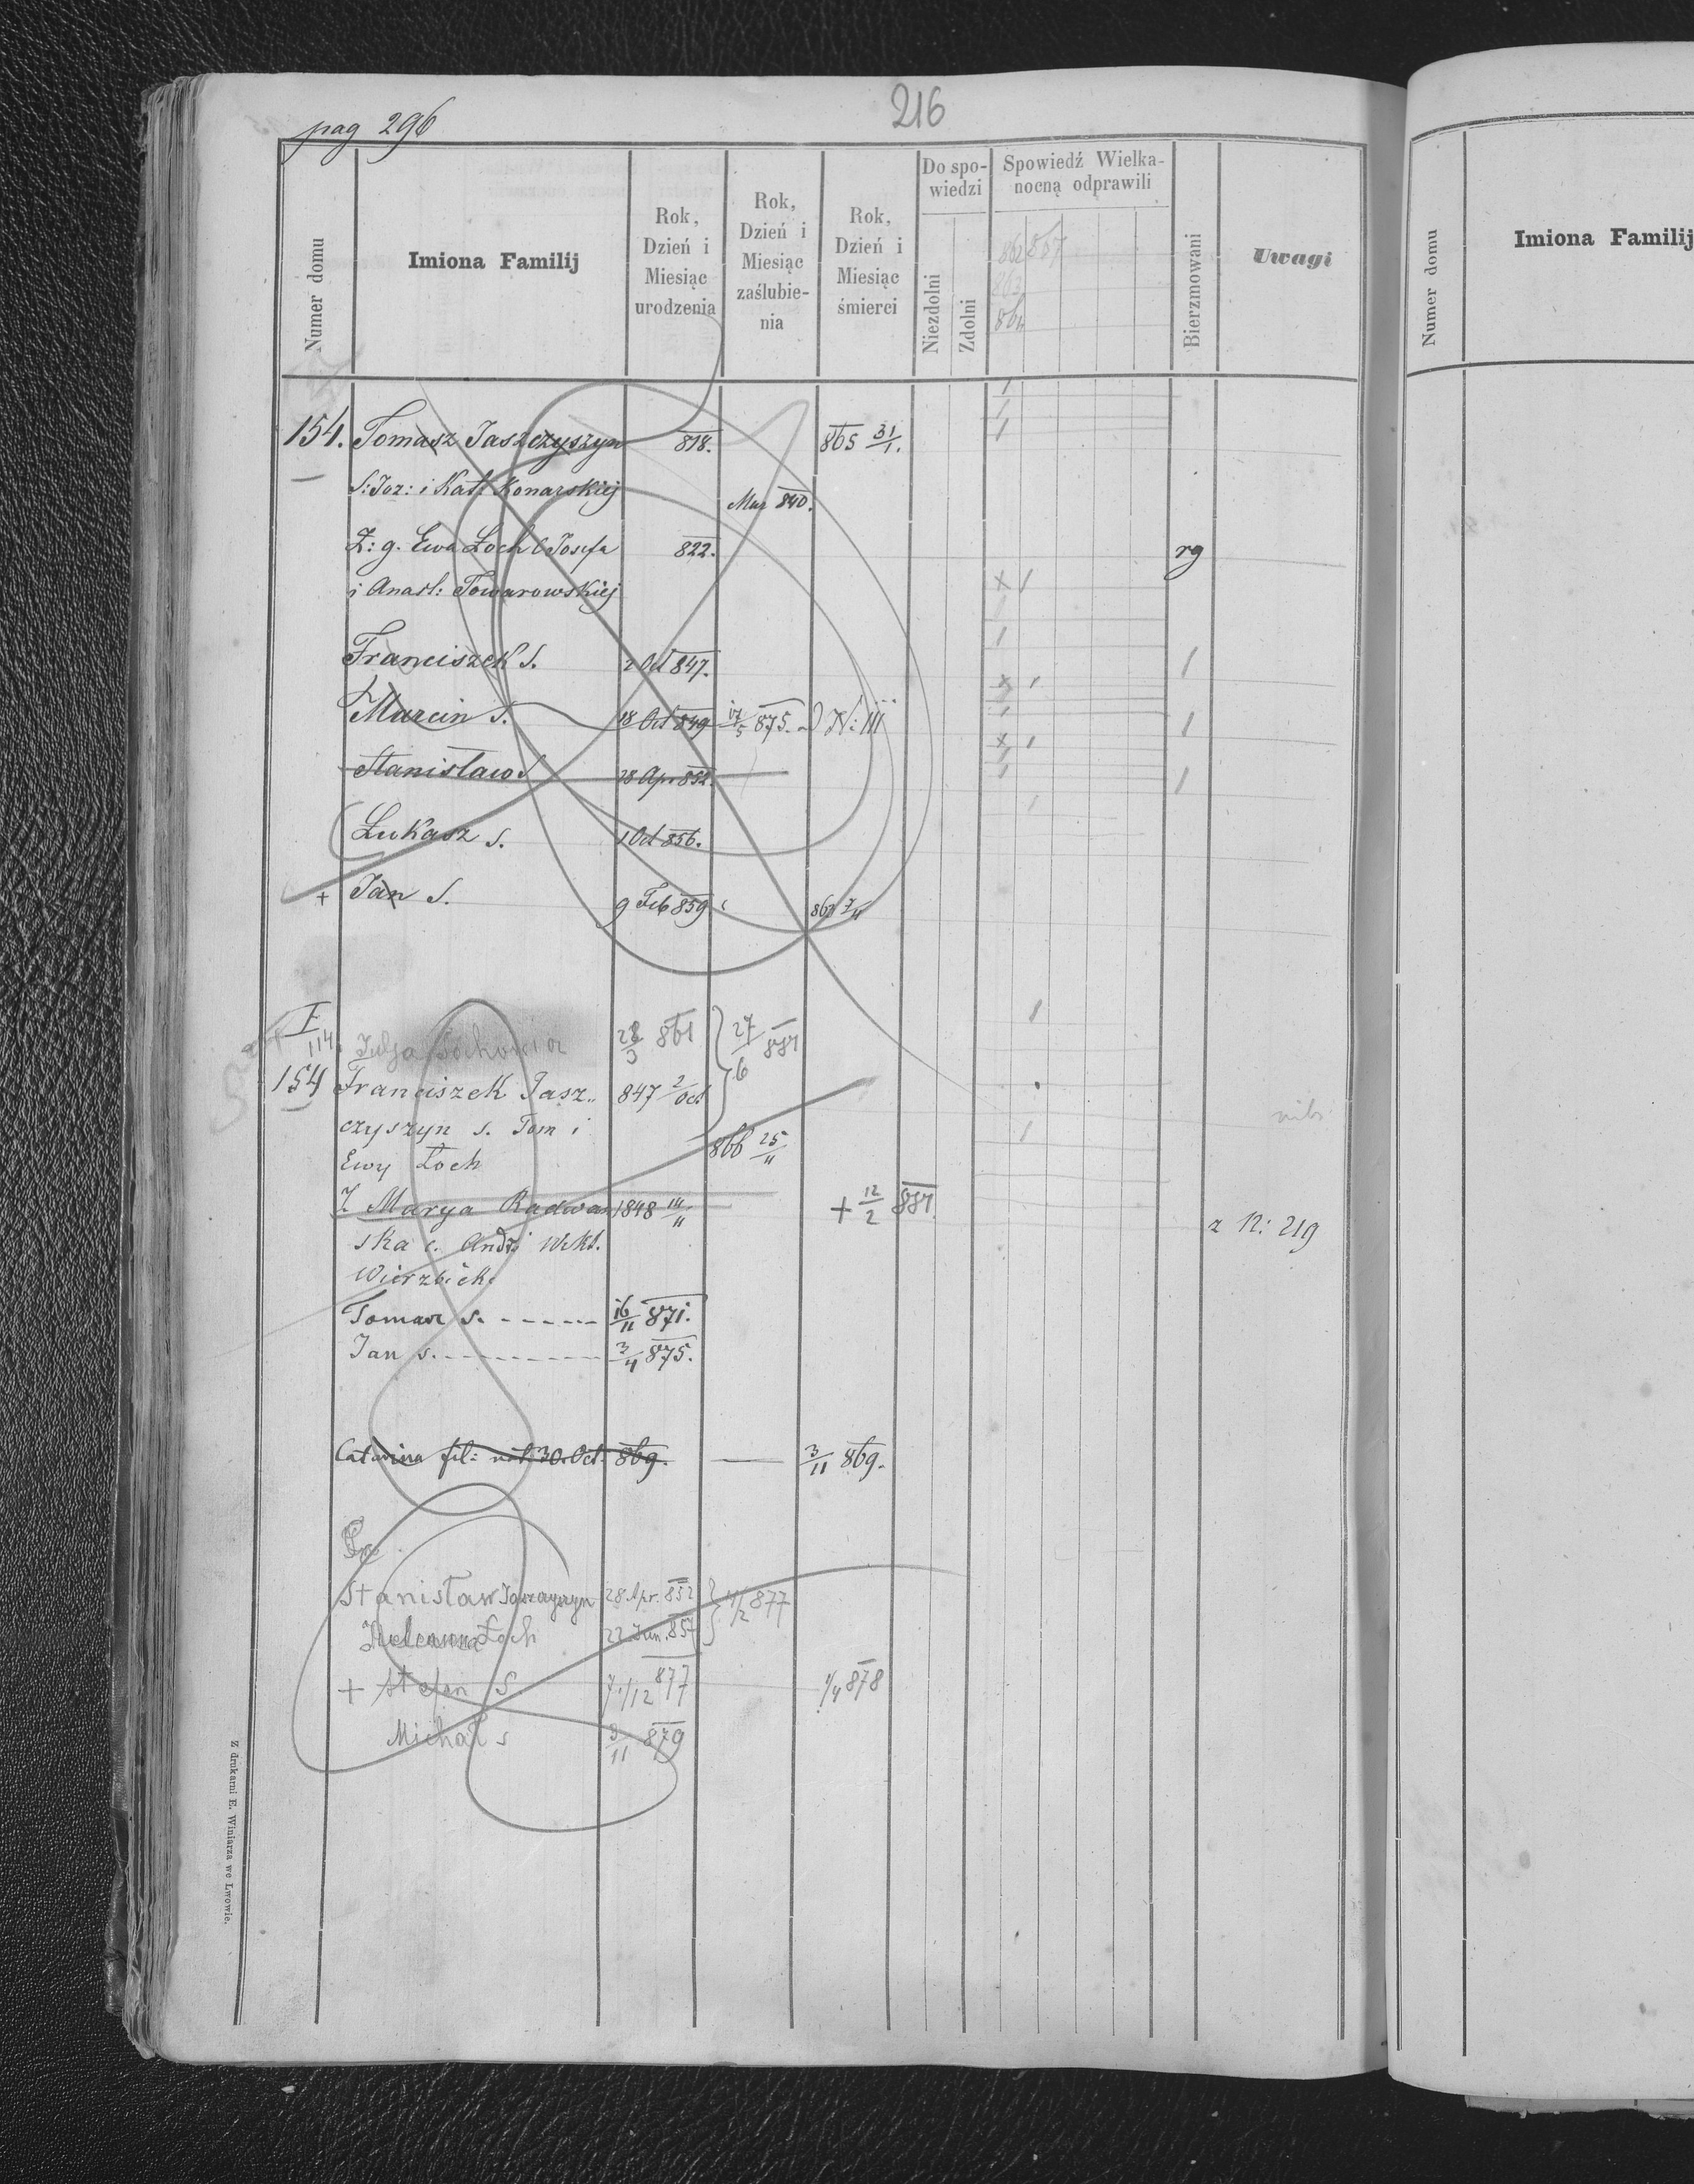 216
pag 296
Numer domu
Imiona Familij
Rok, Dzień i Miesiąc urodzenia
Rok, Dzień i Miesiąc zaślubienia
Rok, Dzień i Miesiąc śmierci
Do spowiedzi
Niezdolni
Zdolni
Spowiedź Wielkanocną odprawili
862 867
863
864
Bierzmowani
Uwagi
154. Tomasz Jaszczyszyn 818. 865 31/1.
S: Joz: i Kat: Konarskiej
Mar 840.
Ż: g. Ewa Łoch C Josefa 822. rg
i Anast: Towarowskiej
Franciszek S. 2 Oct 847.
Marcin S. 18 Oct 849 17/5 875. N: 111
Stanisław S 28 Apr 852.
Łukasz S. 1 Oct 856.
+ Jan S. 9 Feb 859
114. Julja 28/3 861 27/6 881
154 Franciszek Jasz.. 847 2/Oct
czyszyn s. Tom i
Ewy Łoch 866 25/11
Ż. Marya Radwan 1848 14/11 + 12/2 881
ska c. Andrz
z N: 219
Tomasz s. - - - - - - 16/11 871.
Jan s. - - - - - - - - - 3/4 875.
Catarina fil: nat 30. Oct. 869. — 3/11 869.
Stanisław Jaszczyszyn 28 Apr. 852 877
Łoch 22 Jun. 857
+ Stefan S. 877 1/4 878
Michał s 3/11 879
Z drukarni E. Winiarza we Lwowie.
Numer domu
Imiona Familij